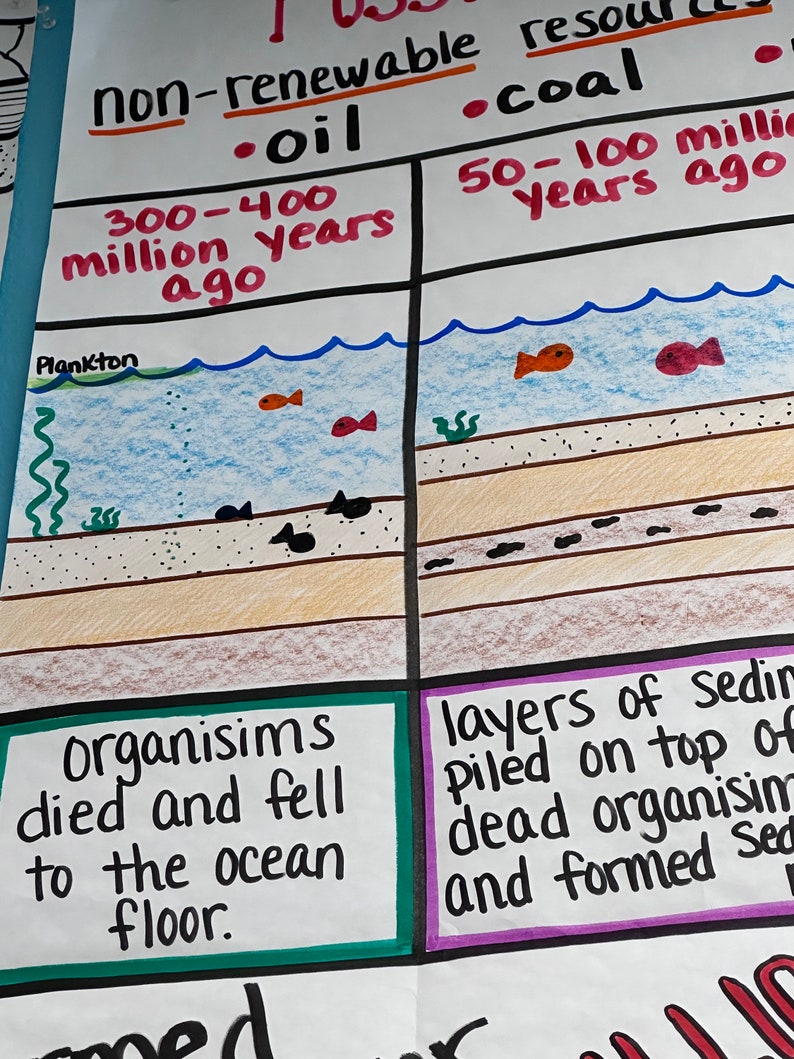 non-renewable resources
• oil • coal
300-400
million years
ago
50-100
years ago
Plankton
organisims
died and fell
to the ocean
floor.
layers of
piled on top of
dead
and formed